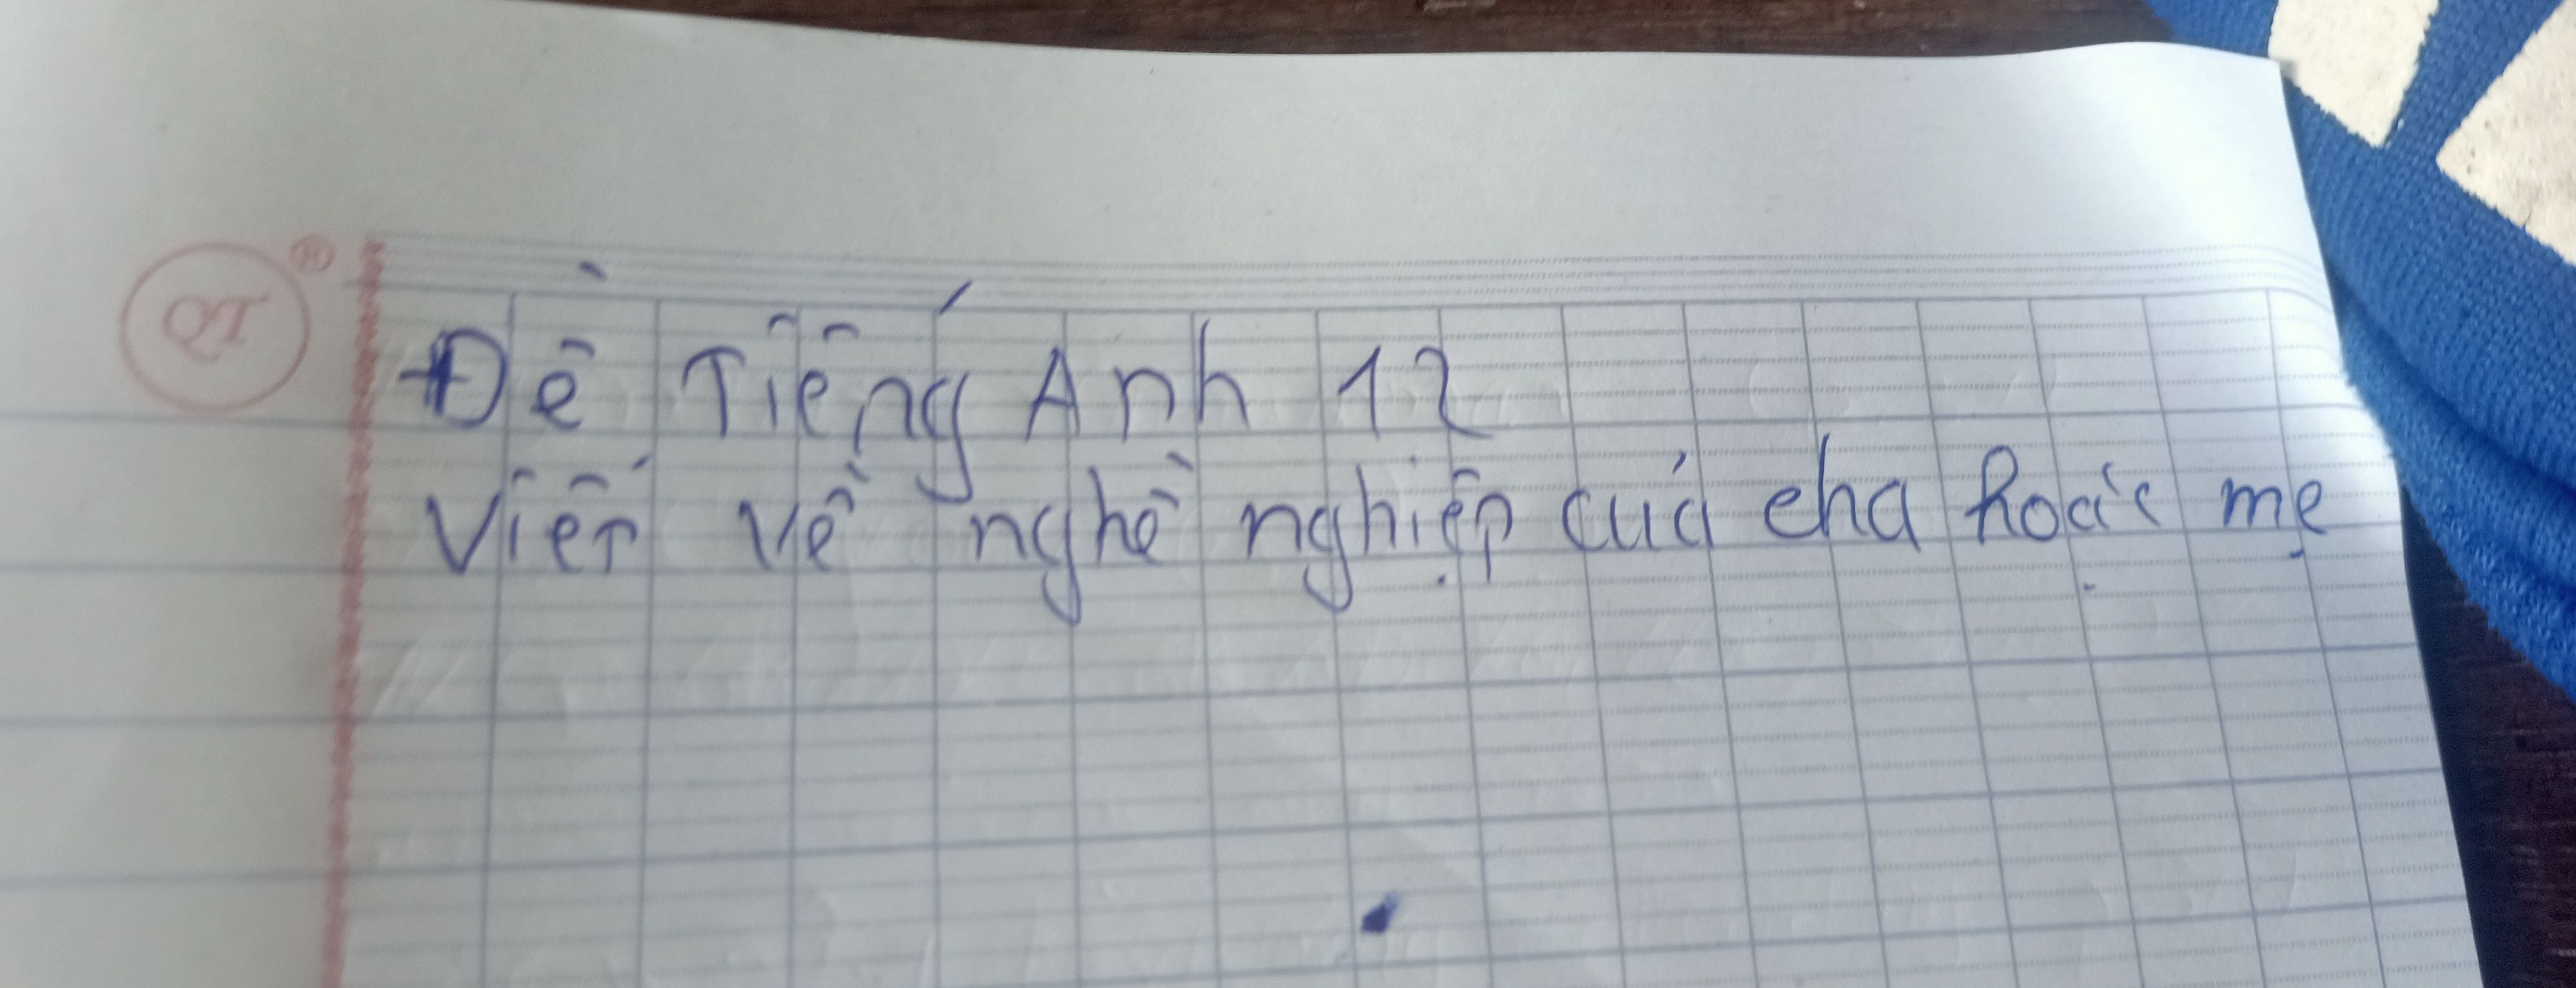 QT
Đề Tiếng Anh 12
Viết về nghề nghiệp của cha hoặc mẹ